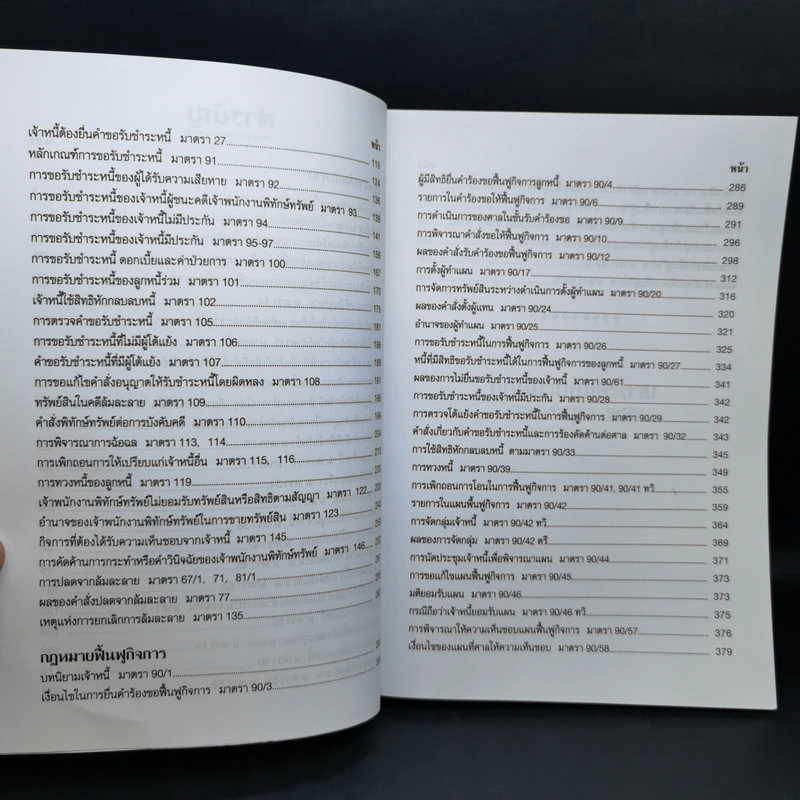 หน้า
เจ้าหนี้ต้องยื่นคำขอรับชำระหนี้ มาตรา 27
หลักเกณฑ์การขอรับชำระหนี้ มาตรา 91 119
การขอรับชำระหนี้ของผู้ได้รับความเสียหาย มาตรา 92 124
การขอรับชำระหนี้ของเจ้าหนี้ผู้ชนะคดีเจ้าพนักงานพิทักษ์ทรัพย์ มาตรา 93 136
การขอรับชำระหนี้ของเจ้าหนี้ไม่มีประกัน มาตรา 94 138
การขอรับชำระหนี้ของเจ้าหนี้มีประกัน มาตรา 95-97 141
การขอรับชำระหนี้ ดอกเบี้ยและค่าป่วยการ มาตรา 100 156
การขอรับชำระหนี้ของลูกหนี้ร่วม มาตรา 101 167
เจ้าหนี้ใช้สิทธิหักกลบลบหนี้ มาตรา 102 170
การตรวจคำขอรับชำระหนี้ มาตรา 105 175
การขอรับชำระหนี้ที่ไม่มีผู้โต้แย้ง มาตรา 106 181
คำขอรับชำระหนี้ที่มีผู้โต้แย้ง มาตรา 107
การขอแก้ไขคำสั่งอนุญาตให้รับชำระหนี้โดยผิดหลง มาตรา 108
ทรัพย์สินในคดีล้มละลาย มาตรา 109
คำสั่งพิทักษ์ทรัพย์ต่อการบังคับคดี มาตรา 110
การพิจารณาการฉ้อฉล มาตรา 113, 114
การเพิกถอนการให้เปรียบแก่เจ้าหนี้อื่น มาตรา 115, 116
การทวงหนี้ของลูกหนี้ มาตรา 119
เจ้าพนักงานพิทักษ์ทรัพย์ไม่ยอมรับทรัพย์สินหรือสิทธิตามสัญญา มาตรา 122
อำนาจของเจ้าพนักงานพิทักษ์ทรัพย์ในการขายทรัพย์สิน มาตรา 123
กิจการที่ต้องได้รับความเห็นชอบจากเจ้าหนี้ มาตรา 145
การคัดค้านการกระทำหรือคำวินิจฉัยของเจ้าพนักงานพิทักษ์ทรัพย์ มาตรา 146
การปลดจากล้มละลาย มาตรา 67/1, 71, 81/1
ผลของคำสั่งปลดจากล้มละลาย มาตรา 77
เหตุแห่งการยกเลิกการล้มละลาย มาตรา 135
กฎหมายฟื้นฟูกิจการ
บทนิยามเจ้าหนี้ มาตรา 90/1
เงื่อนไขในการยื่นคำร้องขอฟื้นฟูกิจการ มาตรา 90/3
หน้า
ผู้มีสิทธิยื่นคำร้องขอฟื้นฟูกิจการลูกหนี้ มาตรา 90/4 286
รายการในคำร้องขอให้ฟื้นฟูกิจการ มาตรา 90/6 289
การดำเนินการของศาลในชั้นรับคำร้องขอ มาตรา 90/9 291
การพิจารณาคำสั่งขอให้ฟื้นฟูกิจการ มาตรา 90/10 296
ผลของคำสั่งรับคำร้องขอฟื้นฟูกิจการ มาตรา 90/12 298
การตั้งผู้ทำแผน มาตรา 90/17 312
การจัดการทรัพย์สินระหว่างดำเนินการตั้งผู้ทำแผน มาตรา 90/20 316
ผลของคำสั่งตั้งผู้แทน มาตรา 90/24 320
อำนาจของผู้ทำแผน มาตรา 90/25 321
การขอรับชำระหนี้ในการฟื้นฟูกิจการ มาตรา 90/26 325
หนี้ที่มีสิทธิขอรับชำระหนี้ได้ในการฟื้นฟูกิจการของลูกหนี้ มาตรา 90/27 334
ผลของการไม่ยื่นขอรับชำระหนี้ของเจ้าหนี้ มาตรา 90/61 341
การขอรับชำระหนี้ของเจ้าหนี้มีประกัน มาตรา 90/28 342
การตรวจโต้แย้งคำขอรับชำระหนี้ในการฟื้นฟูกิจการ มาตรา 90/29 342
คำสั่งเกี่ยวกับคำขอรับชำระหนี้และการร้องคัดค้านต่อศาล มาตรา 90/32 343
การใช้สิทธิหักกลบลบหนี้ ตามมาตรา 90/33 345
การทวงหนี้ มาตรา 90/39 350
การเพิกถอนการโอนในการฟื้นฟูกิจการ มาตรา 90/41, 90/41 ทวิ 355
รายการในแผนฟื้นฟูกิจการ มาตรา 90/42 359
การจัดกลุ่มเจ้าหนี้ มาตรา 90/42 ทวิ 364
ผลของการจัดกลุ่ม มาตรา 90/42 ตรี 369
การนัดประชุมเจ้าหนี้เพื่อพิจารณาแผน มาตรา 90/44 371
การขอแก้ไขแผนฟื้นฟูกิจการ มาตรา 90/45 373
มติยอมรับแผน มาตรา 90/46 373
กรณีถือว่าเจ้าหนี้ยอมรับแผน มาตรา 90/46 ทวิ 375
การพิจารณาให้ความเห็นชอบแผนฟื้นฟูกิจการ มาตรา 90/57 376
เงื่อนไขของแผนที่ศาลให้ความเห็นชอบ มาตรา 90/58 379